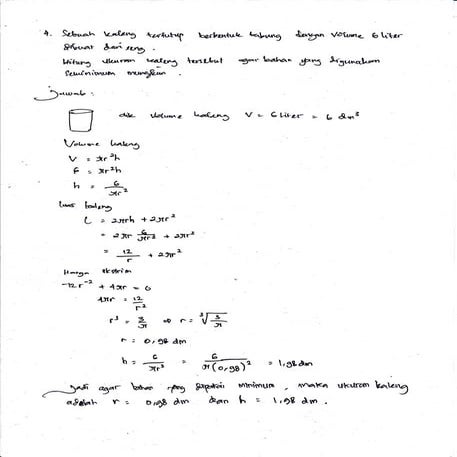 4. Sebuah kaleng tertutup berbentuk tabung dengan volume 6 liter
dibuat dari seng.
Hitung ukuran kaleng tersebut agar bahan yang digunakan
seminimum mungkin.
Jawab:
dik volume kaleng V = 6 liter = 6 dm³
Volume kaleng
V = πr²h
6 = πr²h
h = 6/πr²
Luas kaleng
L = 2πrh + 2πr²
= 2πr 6/πr² + 2πr²
= 12/r + 2πr²
Harga ekstrim
-12r⁻² + 4πr = 0
4πr = 12/r²
r³ = 3/π ⇒ r = ³√(3/π)
r = 0,98 dm
h = 6/πr² = 6/π(0,98)² = 1,98 dm
Jadi agar bahan yang dipakai minimum, maka ukuran kaleng
adalah r = 0,98 dm dan h = 1,98 dm.